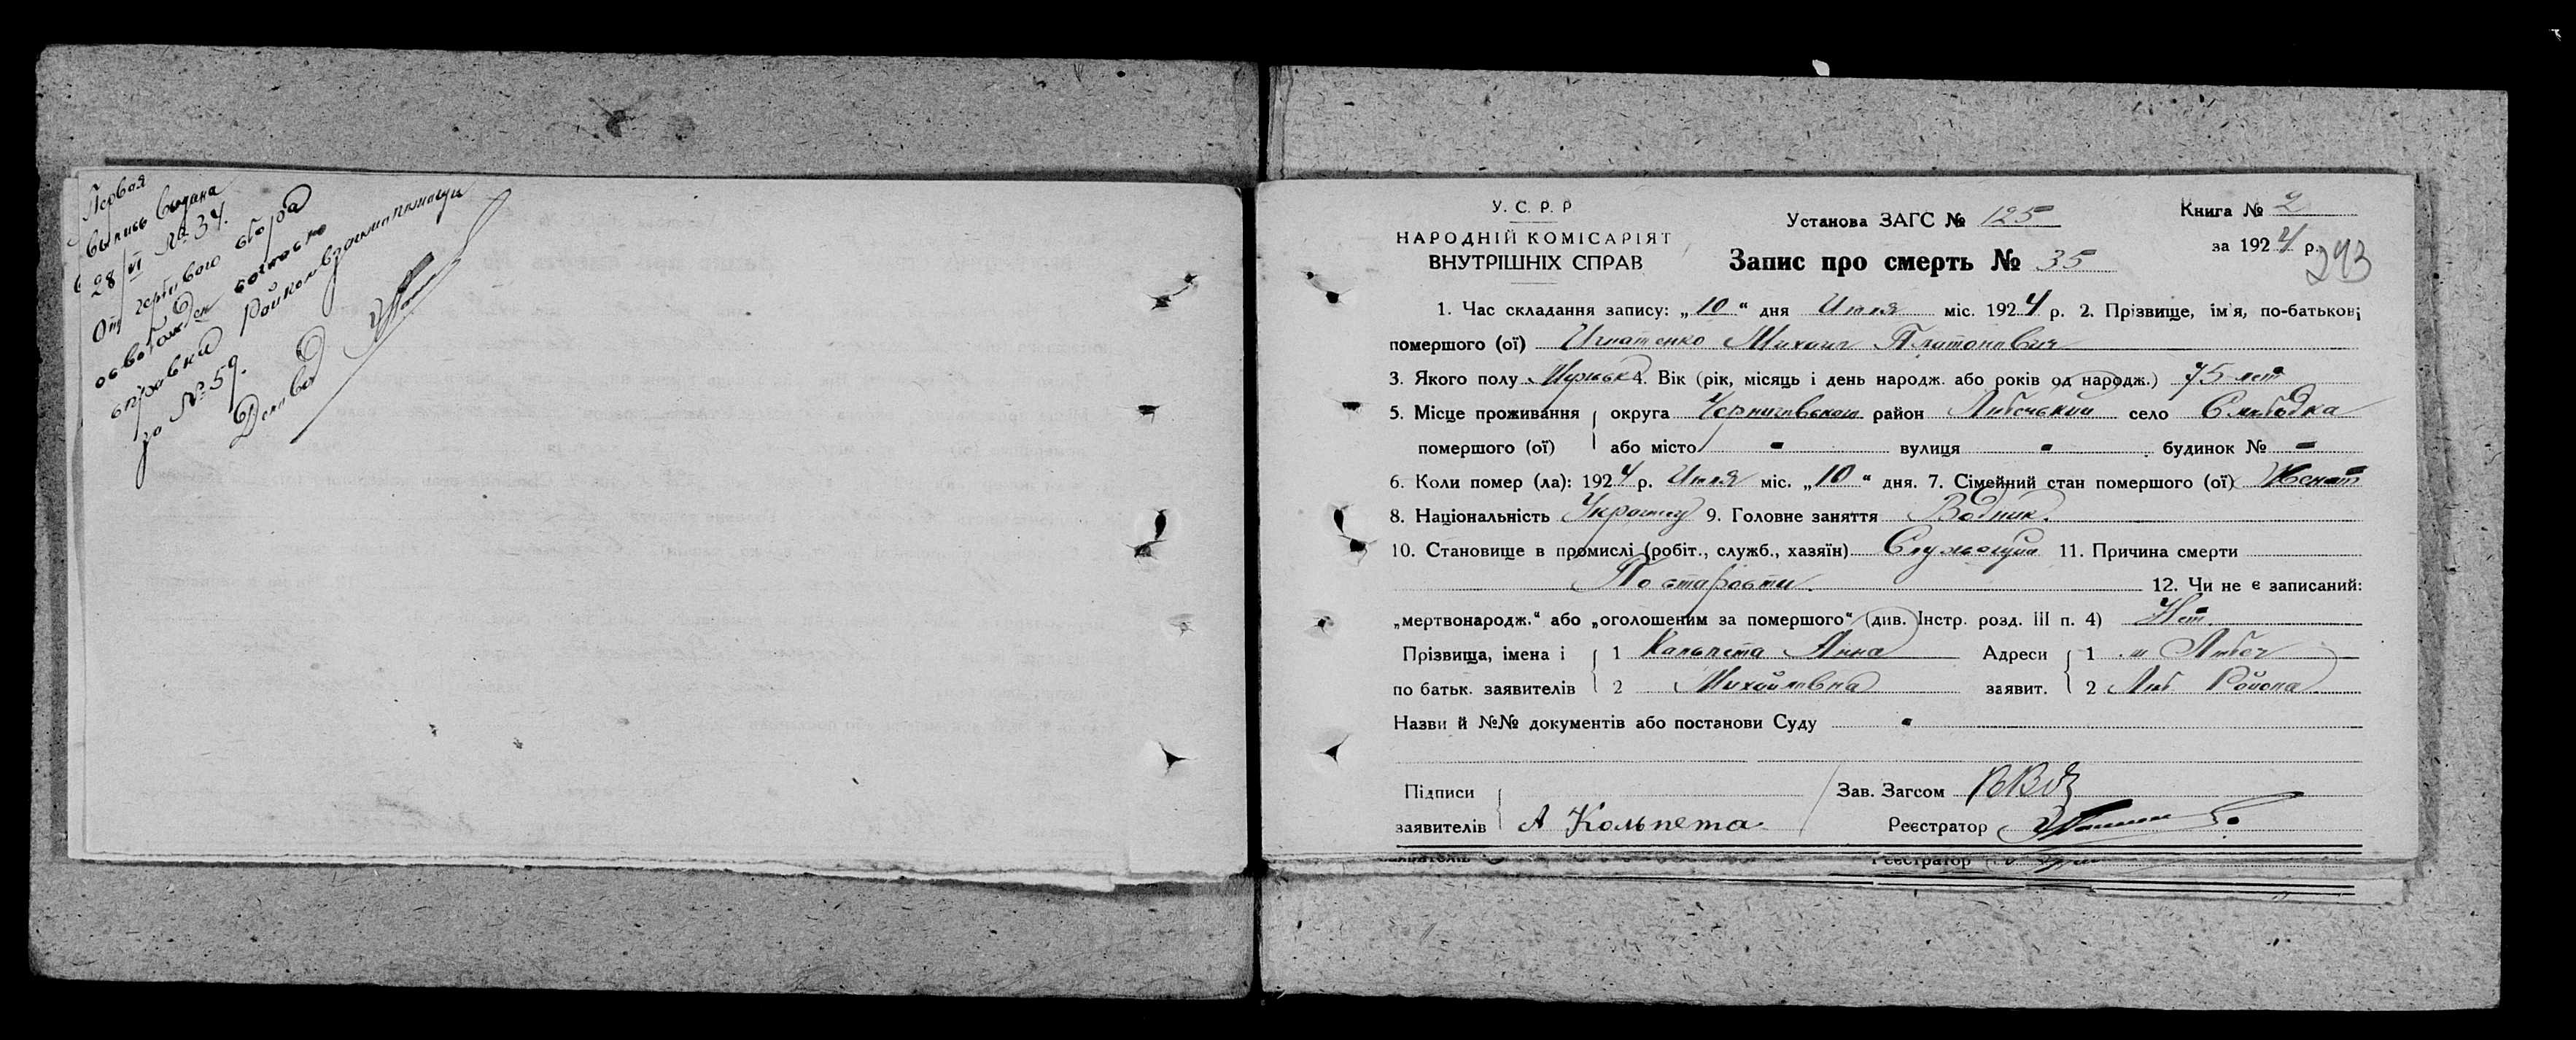 Первая
выпись выдана
28/VI № 34.
От гербового сбора
освобожден согласно
справки Райкомвзаимопомощи
за № 59.
У. С. Р. Р
НАРОДНІЙ КОМІСАРІЯТ
ВНУТРІШНІХ СПРАВ
Установа ЗАГС № 125
Запис про смерть № 35
Книга № 2
за 1924 р.
293
1. Час складання запису: „10“ дня Июля міс. 1924 р. 2. Прізвище, ім'я, по-батькові
помершого (ої) Игнатенко Михаил Платонович
3. Якого полу Мужьск 4. Вік (рік, місяць і день народж. або років од народж.) 75 лет
5. Місце проживання округа Черниговского район Любечький село Слободка
помершого (ої) або місто - вулиця - будинок № -
6. Коли помер (ла): 1924 р. Июля міс. „10“ дня. 7. Сімейний стан помершого (ої) Женат
8. Національність Украинец 9. Головне заняття Водник.
10. Становище в промислі (робіт., служб., хазяїн) Служащий 11. Причина смерти
По старости. 12. Чи не є записаний:
„мертвонародж.“ або „оголошеним за помершого“ (див. Інстр. розд. III п. 4) Нет.
Прізвища, імена і 1 Кольпета Анна Адреси 1 м Любеч
по батьк. заявителів 2 Михайловна заявит. 2 Люб. Района
Назви й №№ документів або постанови Суду -
Підписи Зав. Загсом
заявителів А Кольпета Реєстратор
Реєстратор